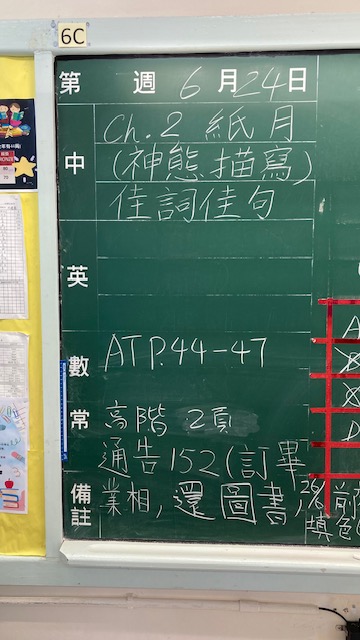 6C
第 週 6月24日
中
Ch.2 紙月
(神態描寫)
佳詞佳句
英
數
AT P.44-47
常
高階 2頁
備註
通告152(訂畢
業相,還圖書,
26/6前
填色
A
D